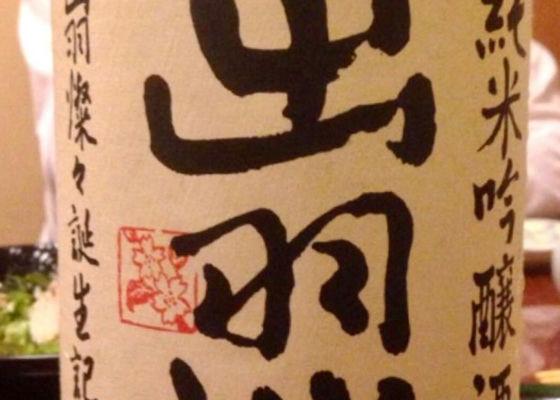 純米吟醸酒
出羽燦
出羽燦々誕生記